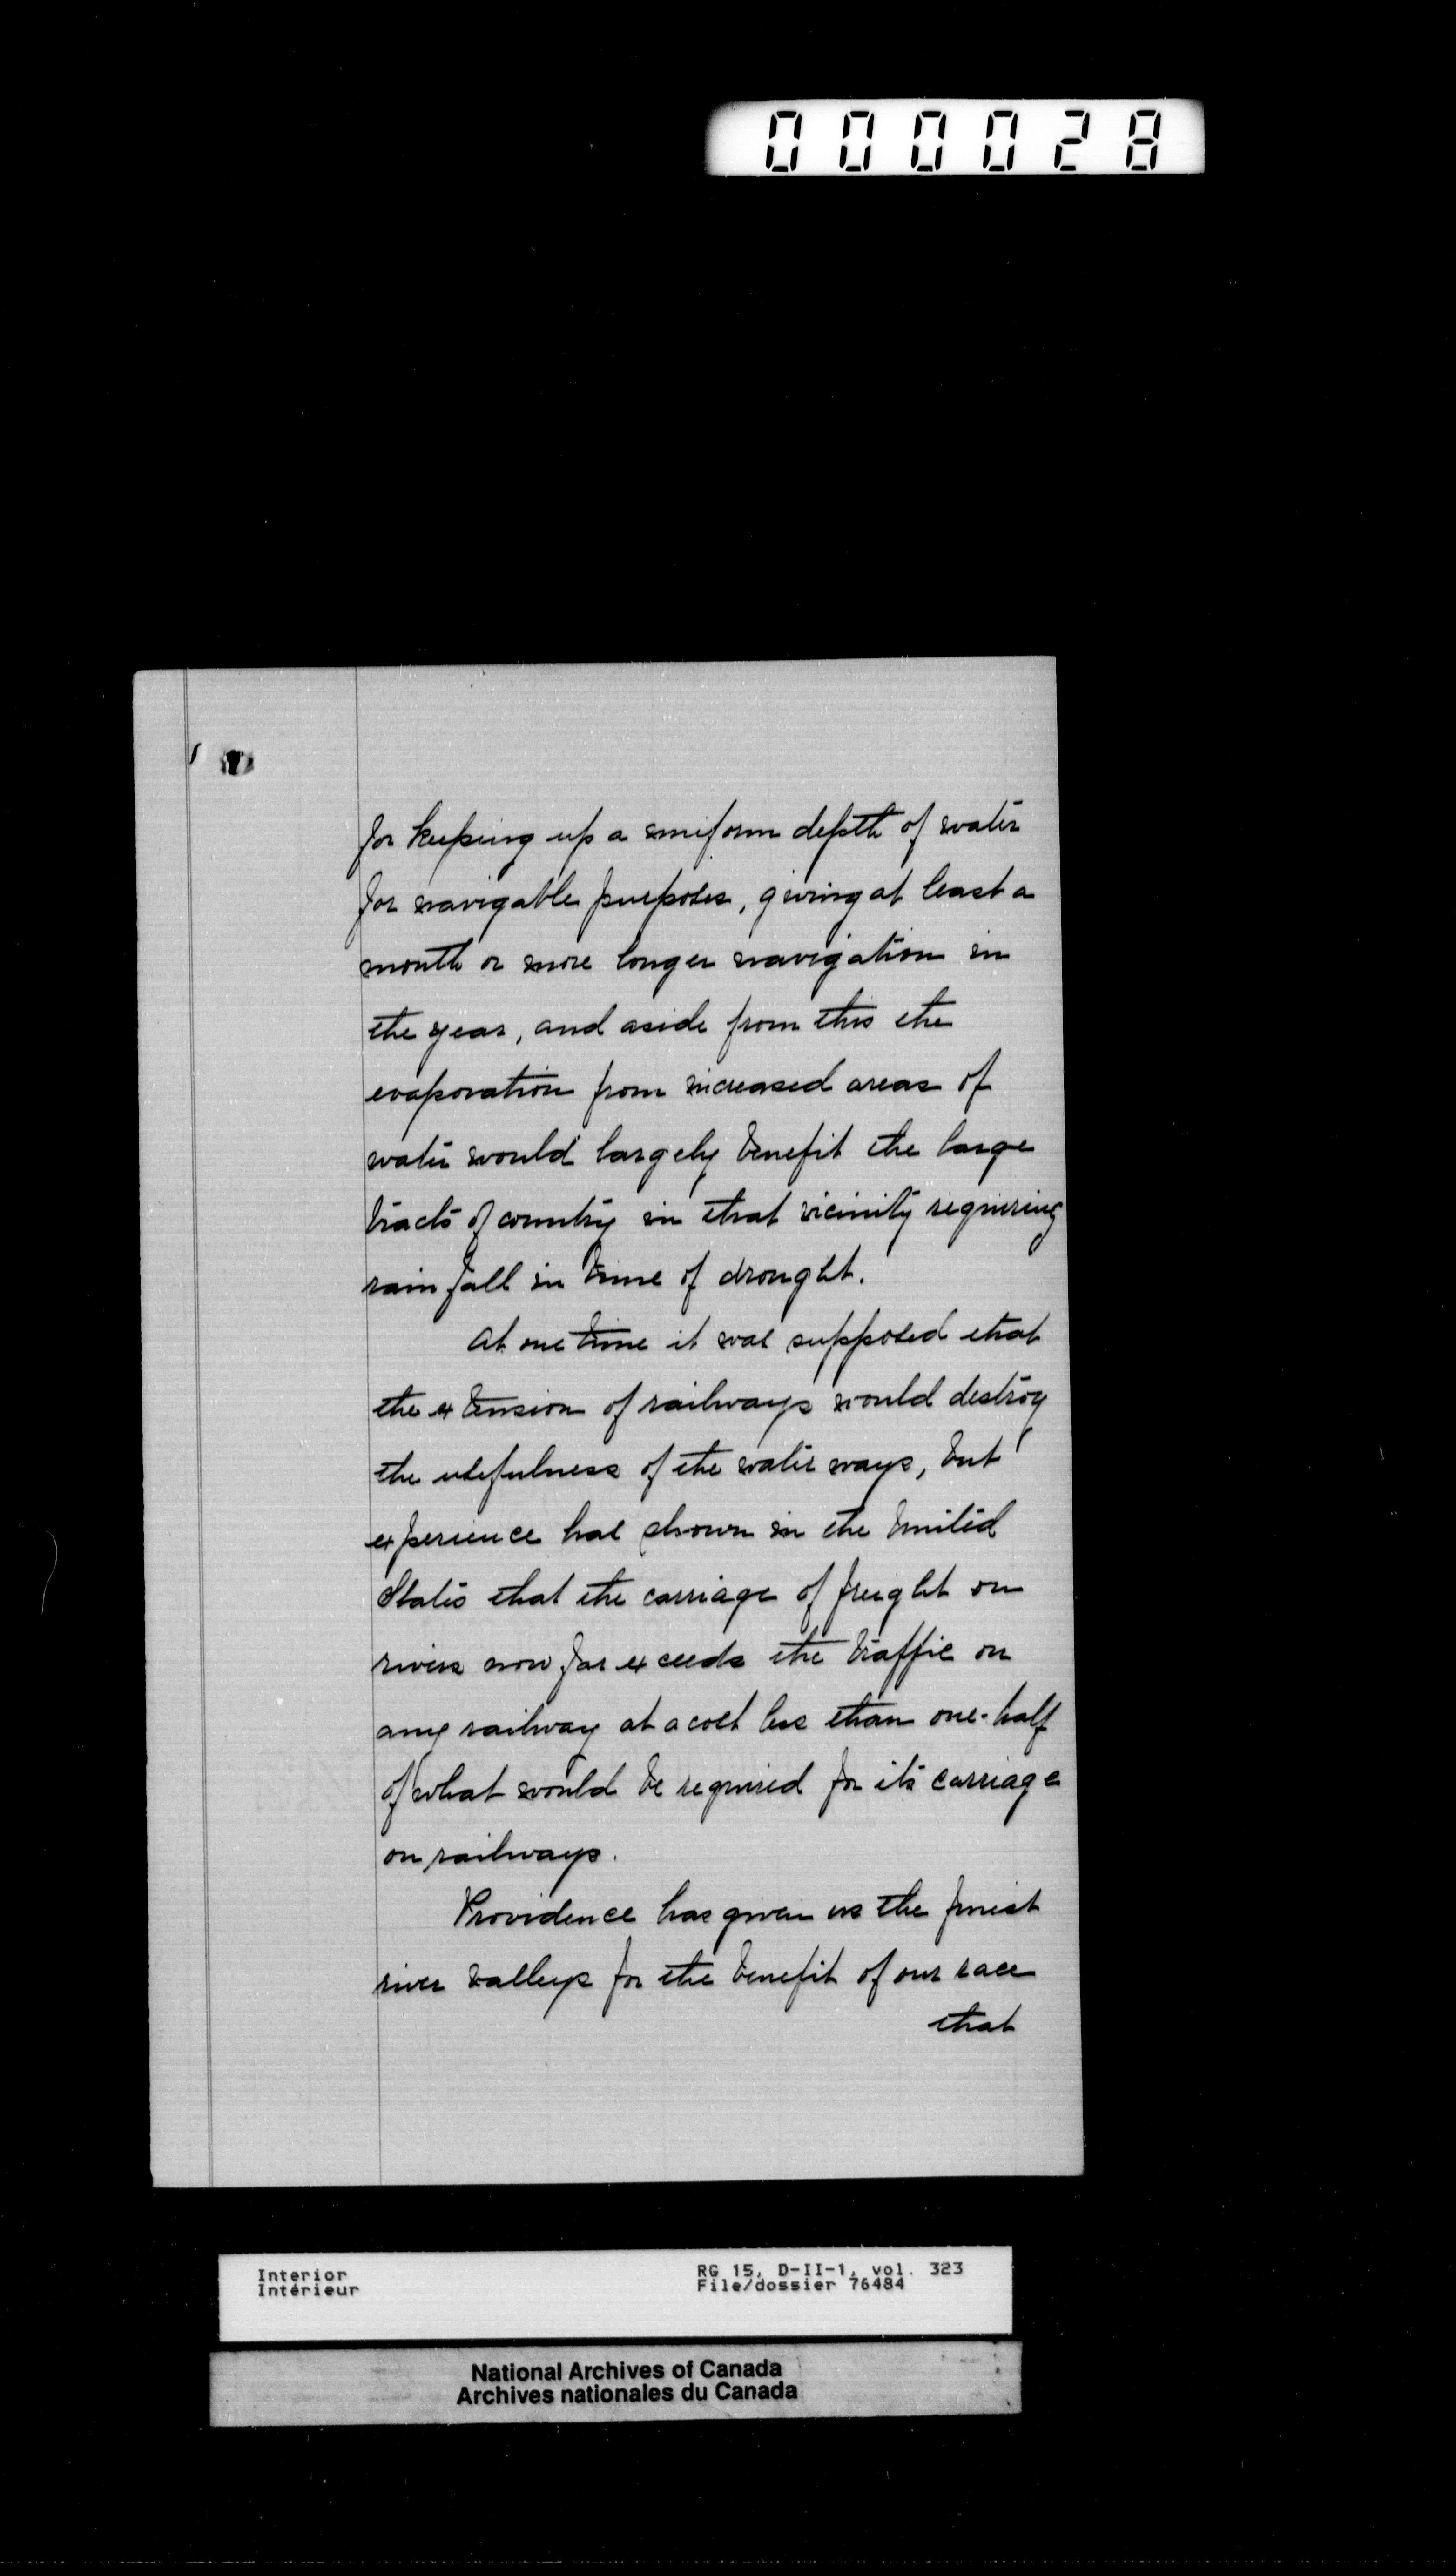 000028
for keeping up a uniform depth of water
for navigable purposes, giving at least a
month or more longer navigation in
the year, and aside from this the
evaporation from increased areas of
water would largely benefit the large
tracts of country in that vicinity requiring
rain fall in time of drought.
At one time it was supposed that
the extension of railways would destroy
the usefulness of the water ways, but
experience has shown in the United
States that the carriage of freight on
rivers now far exceeds the traffic on
any railway at a cost less than one-half
of what would be required for its carriage
on railways.
Providence has given us the finest
river valleys for the benefit of our race
that
Interior RG 15, D-II-1, vol. 323
Intérieur File/dossier 76484
National Archives of Canada
Archives nationales du Canada